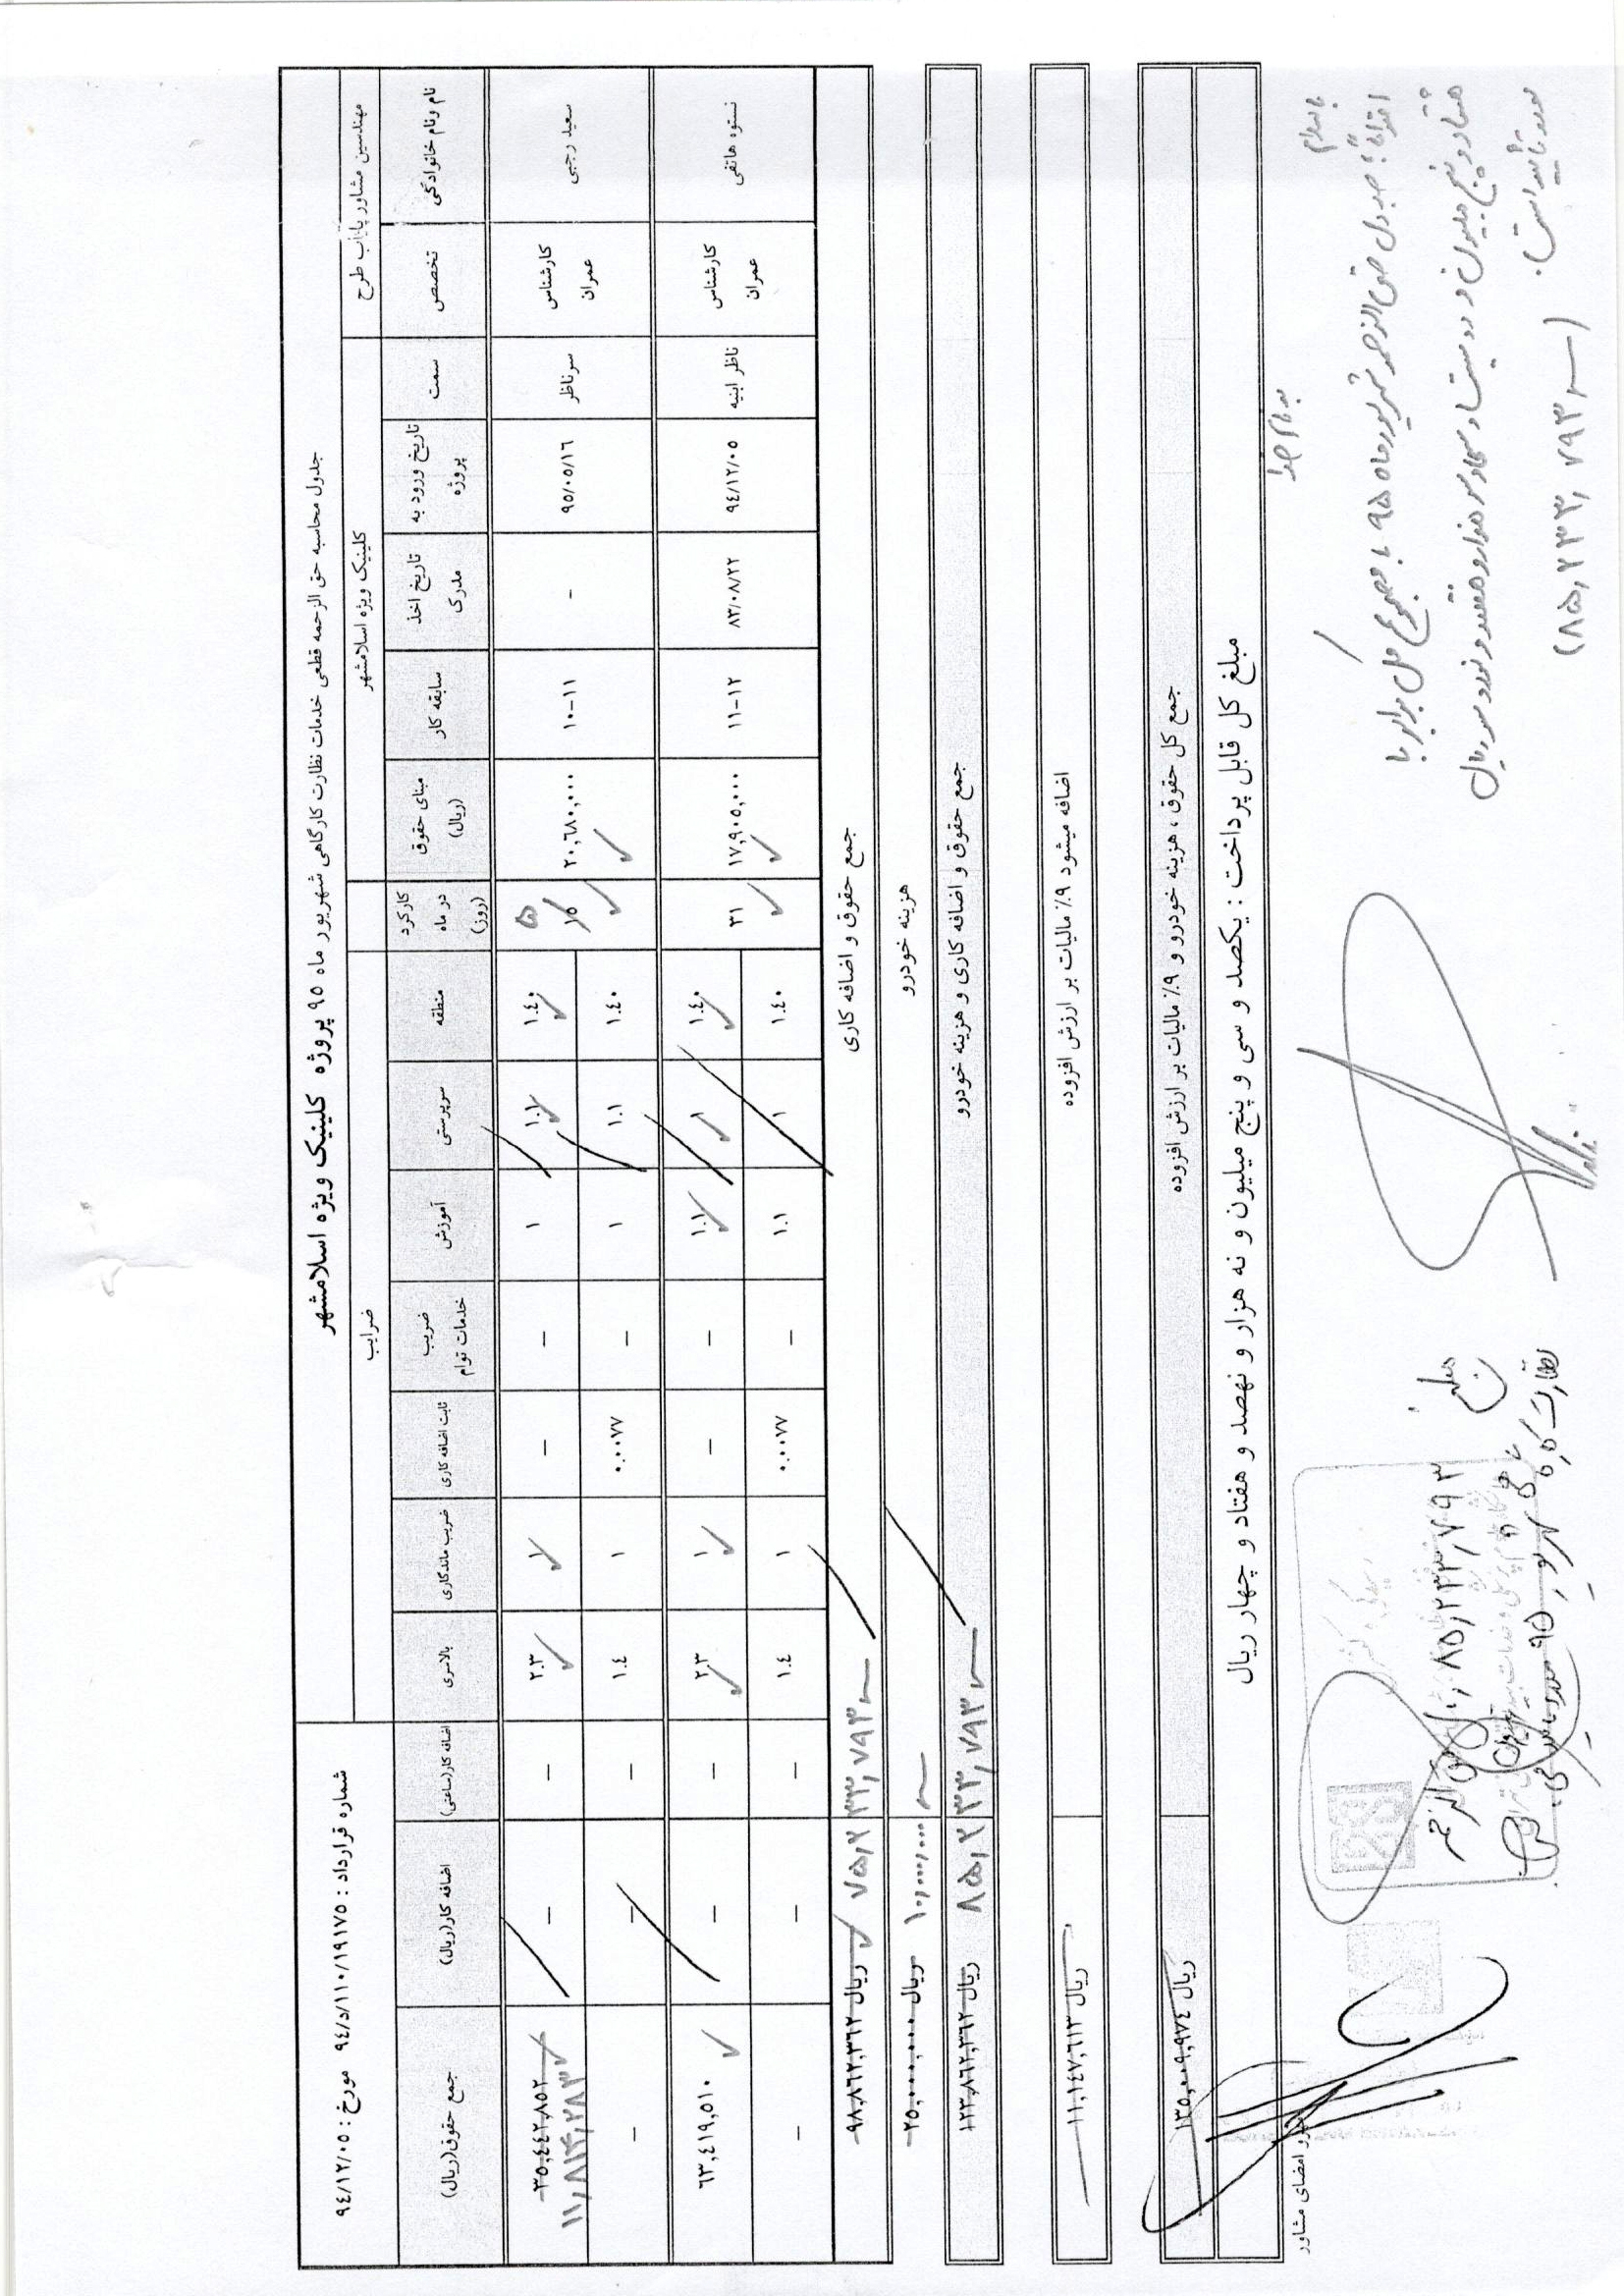 جدول محاسبه حق الزحمه قطعی خدمات نظارت کارگاهی شهریور ماه ۹۵ پروژه کلینیک ویژه اسلامشهر
شماره قرارداد : ۹٤/د/۱۱۰/۱۹۱۷٥ مورخ : ۹٤/۱۲/۰٥
مهندسین مشاور پاراب طرح
کلینیک ویژه اسلامشهر
ضرایب
نام ونام خانوادگی تخصص سمت تاریخ ورود به پروژه تاریخ اخذ مدرک سابقه کار مبنای حقوق (ریال) کارکرد در ماه (روز) منطقه سرپرستی آموزش ضریب خدمات توام ثابت اضافه کاری ضریب ماندگاری بالاسری اضافه کار(ساعتی) اضافه کار(ریال) جمع حقوق(ریال)
سعید رجبی کارشناس عمران سرناظر ۹٥/۰٥/۱٦ - ۱۰-۱۱ ۲۰,٦۸۰,۰۰۰ ۱٥ ۵ ۱.٤۰ ۱.۱ ۱ - - ۱ ۲.۳ - - ۳٥,٤٤۲,۸٥۲
۱۱,۸۱۴,۲۸۳
۱.٤۰ ۱.۱ ۱ - ۰.۰۰۷۷ ۱ ۱.٤ - - -
نستوه هاتفی کارشناس عمران ناظر ابنیه ۹٤/۱۲/۰٥ ۸۳/۰۸/۲۲ ۱۱-۱۲ ۱۷,۹۰٥,۰۰۰ ۳۱ ۱.٤۰ ۱ ۱.۱ - - ۱ ۲.۳ - - ٦۳,٤۱۹,٥۱۰
۱.٤۰ ۱ ۱.۱ - ۰.۰۰۷۷ ۱ ۱.٤ - - -
جمع حقوق و اضافه کاری ۷۵,۲۳۳,۷۹۳ ریال ۹۸,۸٦۲,۳٦۲
هزینه خودرو ۱۰,۰۰۰,۰۰۰ ریال ۲٥,۰۰۰,۰۰۰
جمع حقوق و اضافه کاری و هزینه خودرو ۸۵,۲۳۳,۷۹۳ ریال ۱۲۳,۸٦۲,۳٦۲
اضافه میشود ۹٪ مالیات بر ارزش افزوده ریال ۱۱,۱٤۷,٦۱۳
جمع کل حقوق ، هزینه خودرو و ۹٪ مالیات بر ارزش افزوده ریال ۱۳٥,۰۰۹,۹۷٤
مبلغ کل قابل پرداخت : یکصد و سی و پنج میلیون و نه هزار و نهصد و هفتاد و چهار ریال
بنام خدا
با سلام
احتراماً؛ جدول حق الزحمه شهریورماه ۹۵ با مجموع کل برابر با
هشتاد و پنج میلیون و دویست و سی و سه هزار و هفتصد و نود و سه ریال
(۸۵,۲۳۳,۷۹۳) مورد تأیید است.
مبلغ ۸۵,۲۳۳,۷۹۳ ریال حق الزحمه
نظارت کارگاهی شهریور ۹۵ مورد تایید می
مهر و امضای مشاور